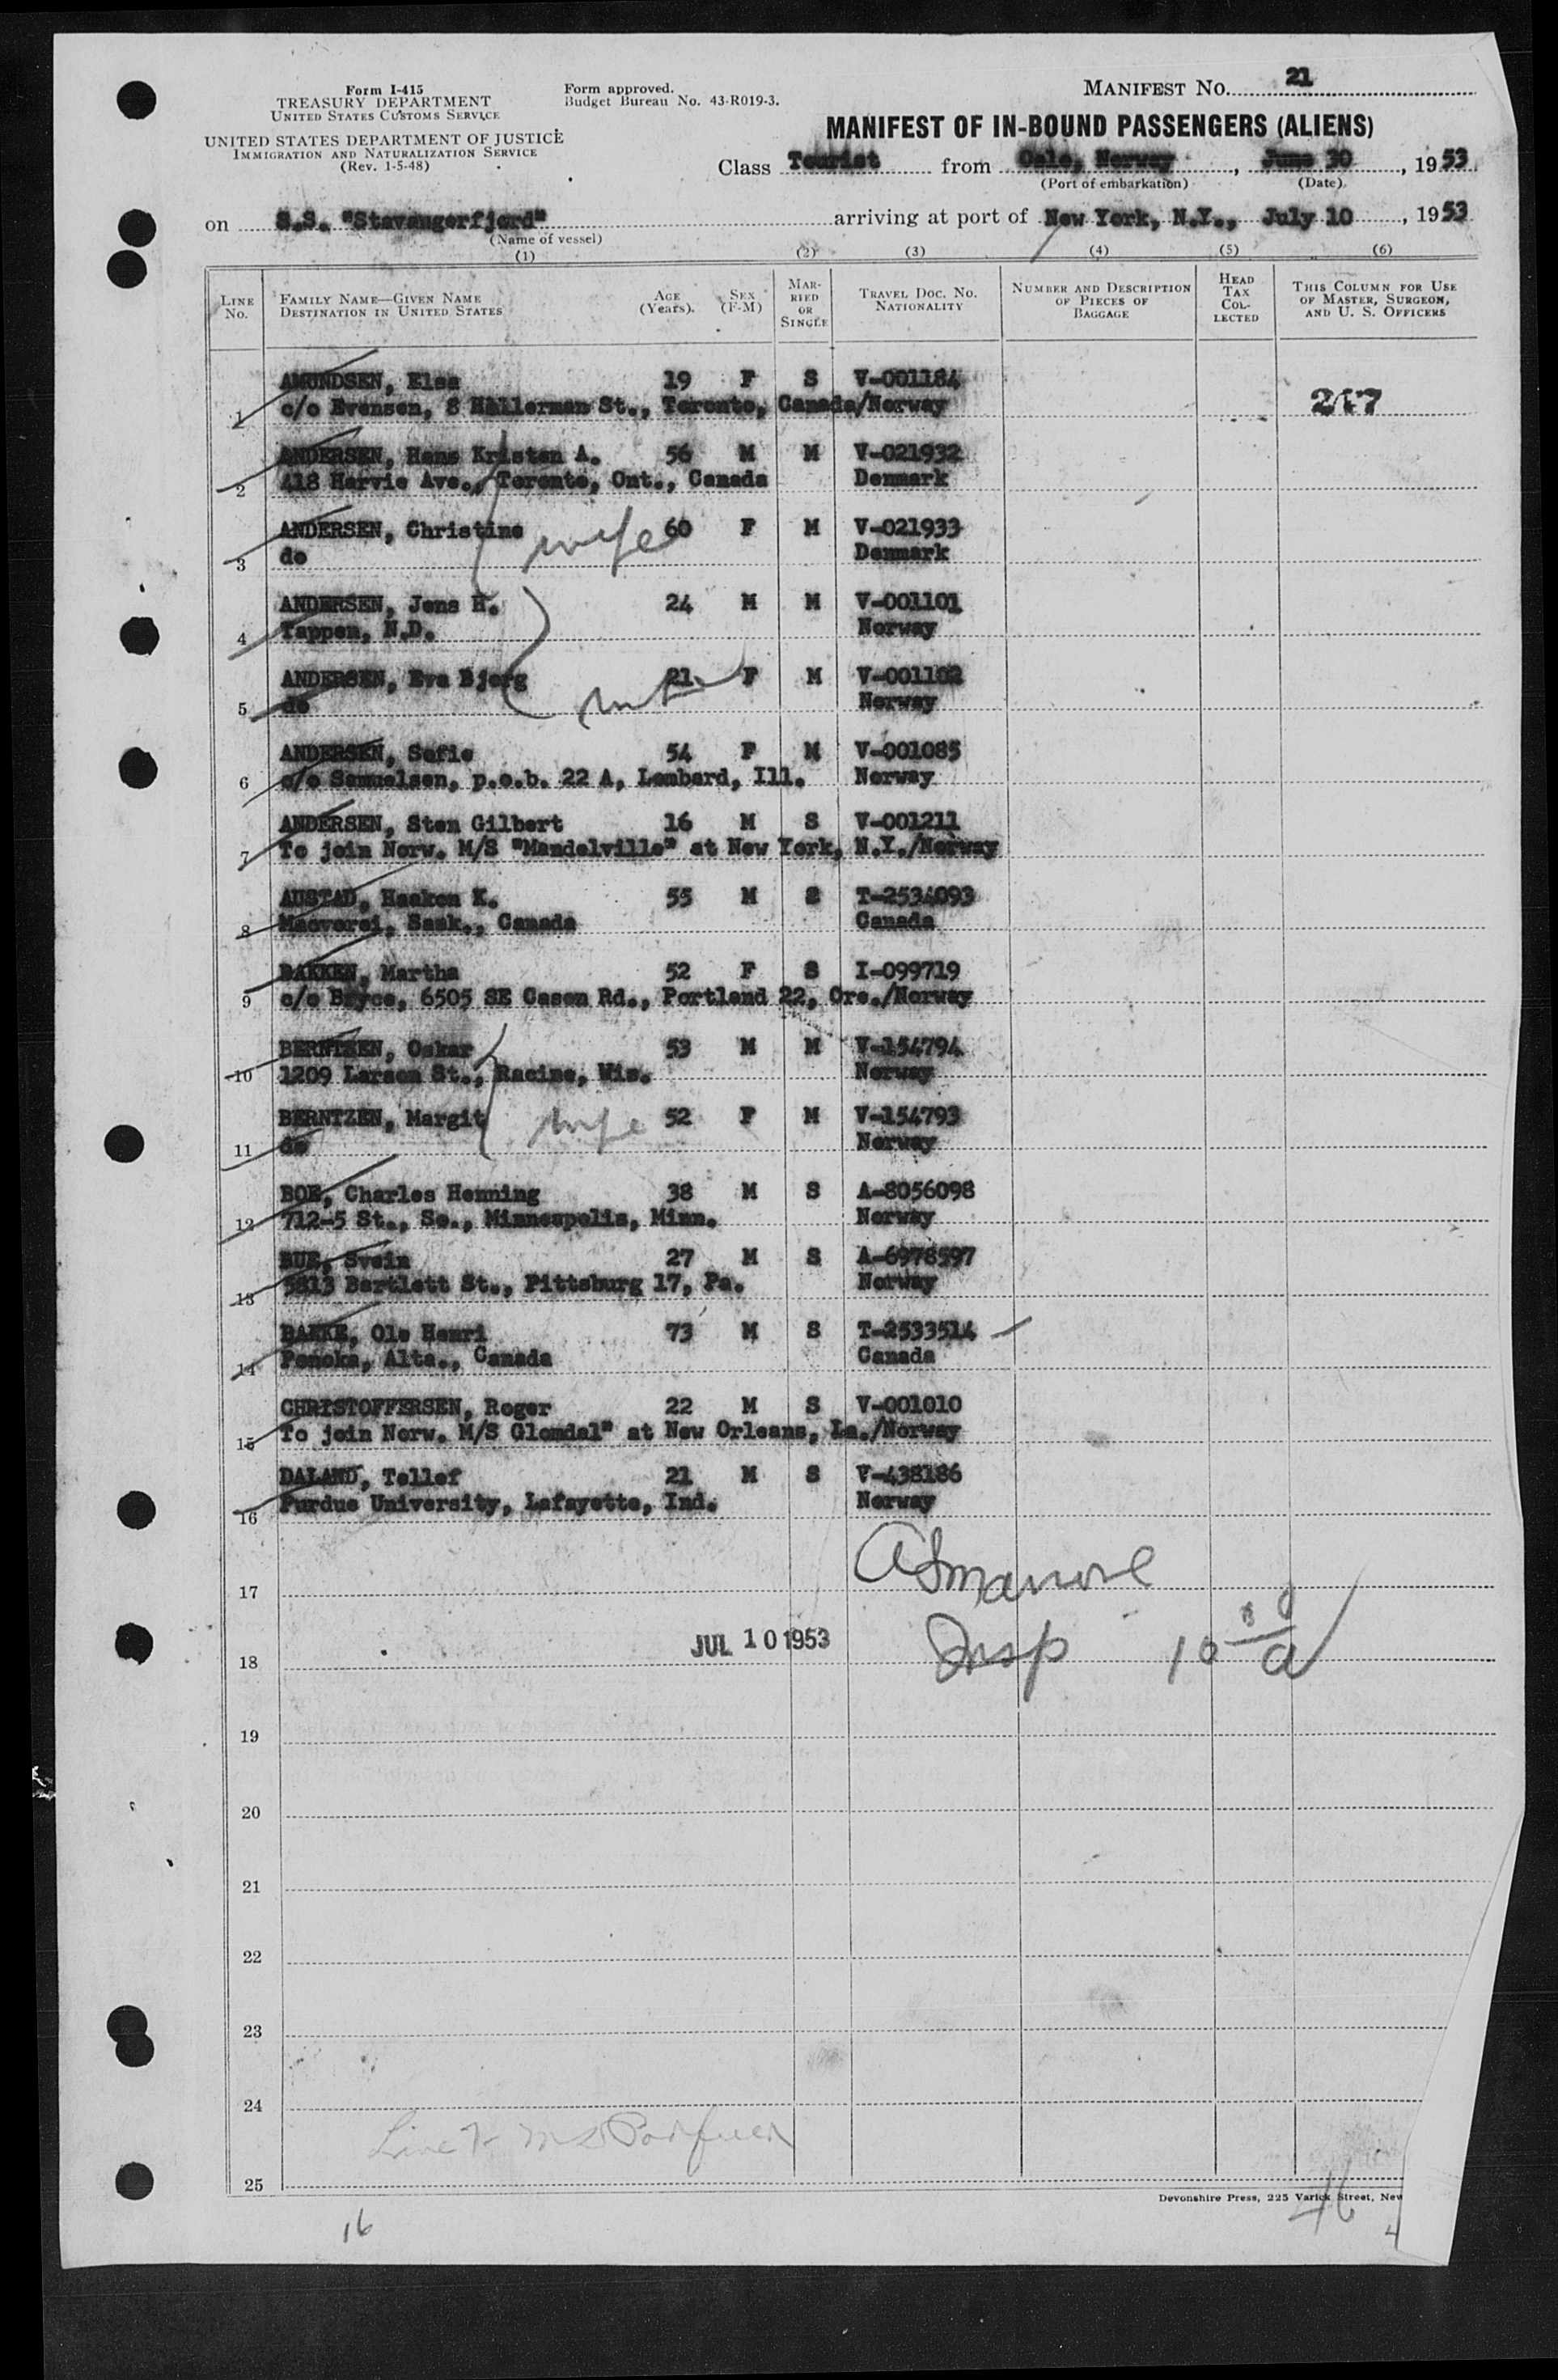 Form I-415
TREASURY DEPARTMENT
UNITED STATES CUSTOMS SERVICE
UNITED STATES DEPARTMENT OF JUSTICE
IMMIGRATION AND NATURALIZATION SERVICE
(Rev. 1-5-48)
Form approved.
Budget Bureau No. 43-R019-3.
MANIFEST NO. 21
MANIFEST OF IN-BOUND PASSENGERS (ALIENS)
Class Tourist from Oslo, Norway, June 30, 1953
(Port of embarkation) (Date)
on S.S. "Stavangerfjord" arriving at port of New York, N.Y., July 10, 1953
(Name of vessel)
(1) (2) (3) (4) (5) (6)
LINE NO. FAMILY NAME—GIVEN NAME DESTINATION IN UNITED STATES AGE (Years) SEX (F-M) MARRIED OR SINGLE TRAVEL DOC. NO. NATIONALITY NUMBER AND DESCRIPTION OF PIECES OF BAGGAGE HEAD TAX COLLECTED THIS COLUMN FOR USE OF MASTER, SURGEON, AND U. S. OFFICERS
AMUNDSEN, Elsa 19 F S V-001184
1 c/o Evensen, 8 Hallerman St., Toronto, Canada/Norway 247
ANDERSEN, Hans Kristen A. 56 M M V-021932
2 418 Harvie Ave., Toronto, Ont., Canada Denmark
ANDERSEN, Christine wife 60 F M V-021933
3 do Denmark
ANDERSEN, Jens H. 24 M M V-001101
4 Tappen, N.D. Norway
ANDERSEN, Eva Bjorg 21 F M V-001102
5 do Norway
ANDERSEN, Sofie 54 F M V-001085
6 c/o Samuelsen, p.o.b. 22 A, Lombard, Ill. Norway
ANDERSEN, Sten Gilbert 16 M S V-001211
7 To join Norw. M/S "Mandelville" at New York, N.Y./Norway
AUSTAD, Haakon K. 55 M S T-2534093
8 Sask., Canada Canada
BAKKEN, Martha 52 F S I-099719
9 c/o Bryce, 6505 SE Cason Rd., Portland 22, Ore./Norway
BERNTZEN, Oskar 53 M M V-154794
10 1209 Larson St., Racine, Wis. Norway
BERNTZEN, Margit wife 52 F M V-154793
11 do Norway
BOE, Charles Henning 38 M S A-8056098
12 712-5 St., So., Minneapolis, Minn. Norway
BUE, Svein 27 M S A-6978597
13 5813 Bartlett St., Pittsburg 17, Pa. Norway
BAKKE, Ole Henri 73 M S T-2533514
14 Ponoka, Alta., Canada Canada
CHRISTOFFERSEN, Roger 22 M S V-001010
15 To join Norw. M/S Glomdal" at New Orleans, La./Norway
DALAND, Tellef 21 M S V-438186
16 Purdue University, Lafayette, Ind. Norway
17
JUL 10 1953
Insp
18
19
20
21
22
23
24
25
Devonshire Press, 225 Varick Street, New
16
46